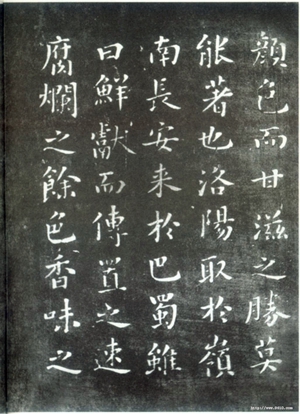 顏色而甘滋之勝莫
能著也洛陽取於嶺
南長安来於巴蜀雖
曰鮮獻而傳置之速
腐爛之餘色香味之